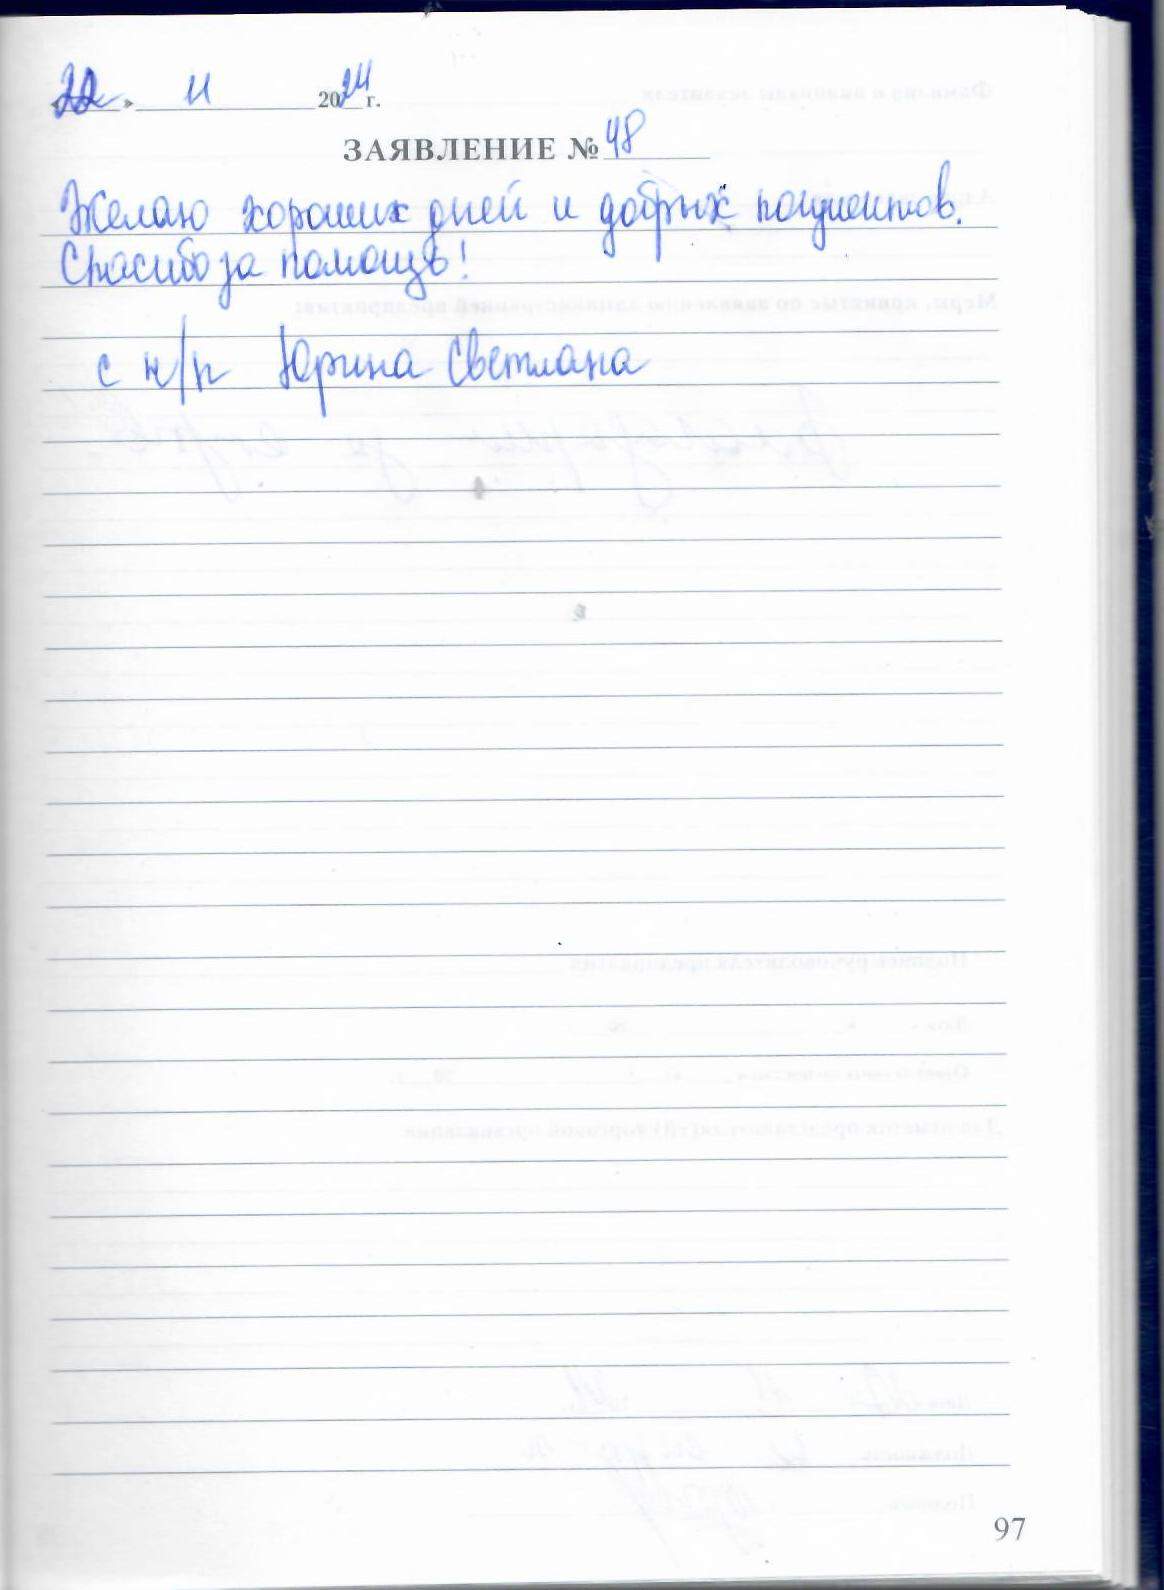 «22» 11 2024 г.
ЗАЯВЛЕНИЕ № 48
Желаю хороших дней и добрых пациентов.
Спасибо за помощь!
с н/п Юрина Светлана
97